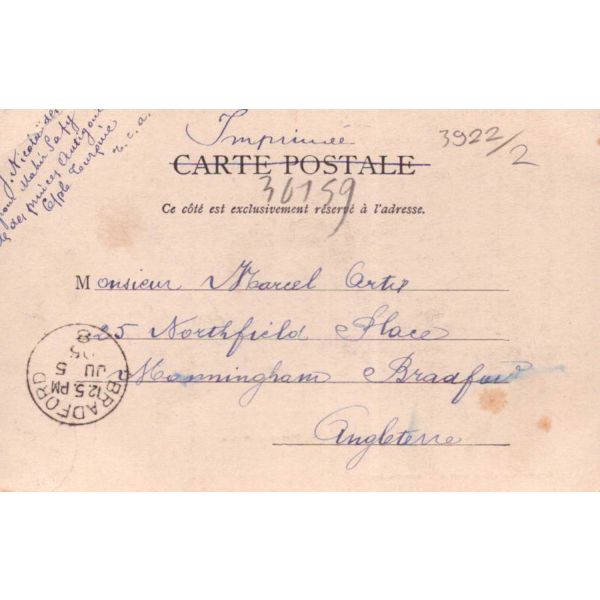 J. Nicolaïdes
pour Mahé Saty
des princes
Cple Turquie
Imprimée
3922/2
CARTE POSTALE
36159
Ce côté est exclusivement réservé à l'adresse.
Monsieur Marcel
25 Northfield Place
Manningham Bradford
Angleterre
BRADFORD
12 5 PM
JU 5
05
8